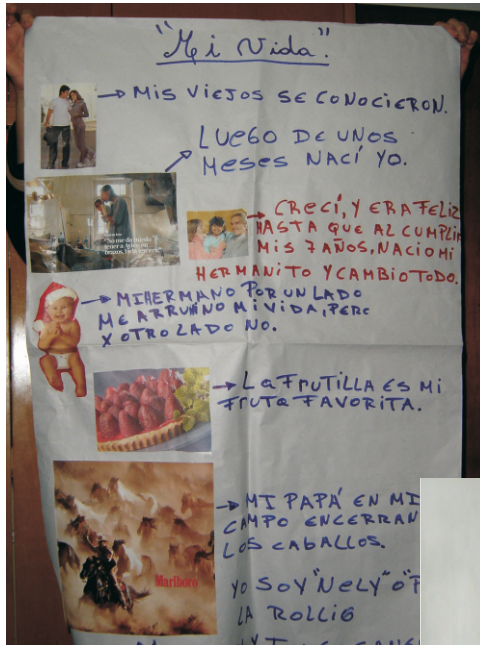 "Mi Vida".
→ MIS VIEJOS SE CONOCIERON.
LUEGO DE UNOS
MESES NACÍ YO.
CRECÍ, Y ERA FELIZ
HASTA QUE AL CUMPLIR
MIS 7 AÑOS, NACIO MI
HERMANITO Y CAMBIO TODO.
MI HERMANO POR UN LADO
ME ARRUHINO MI VIDA, PERO
X OTRO LADO NO.
LA FRUTILLA ES MI
FRUTA FAVORITA.
Marlboro
MI PAPÁ EN MI
CAMPO ENCERRAN
LOS CABALLOS.
YO SOY "NELY" O
LA ROLLIG